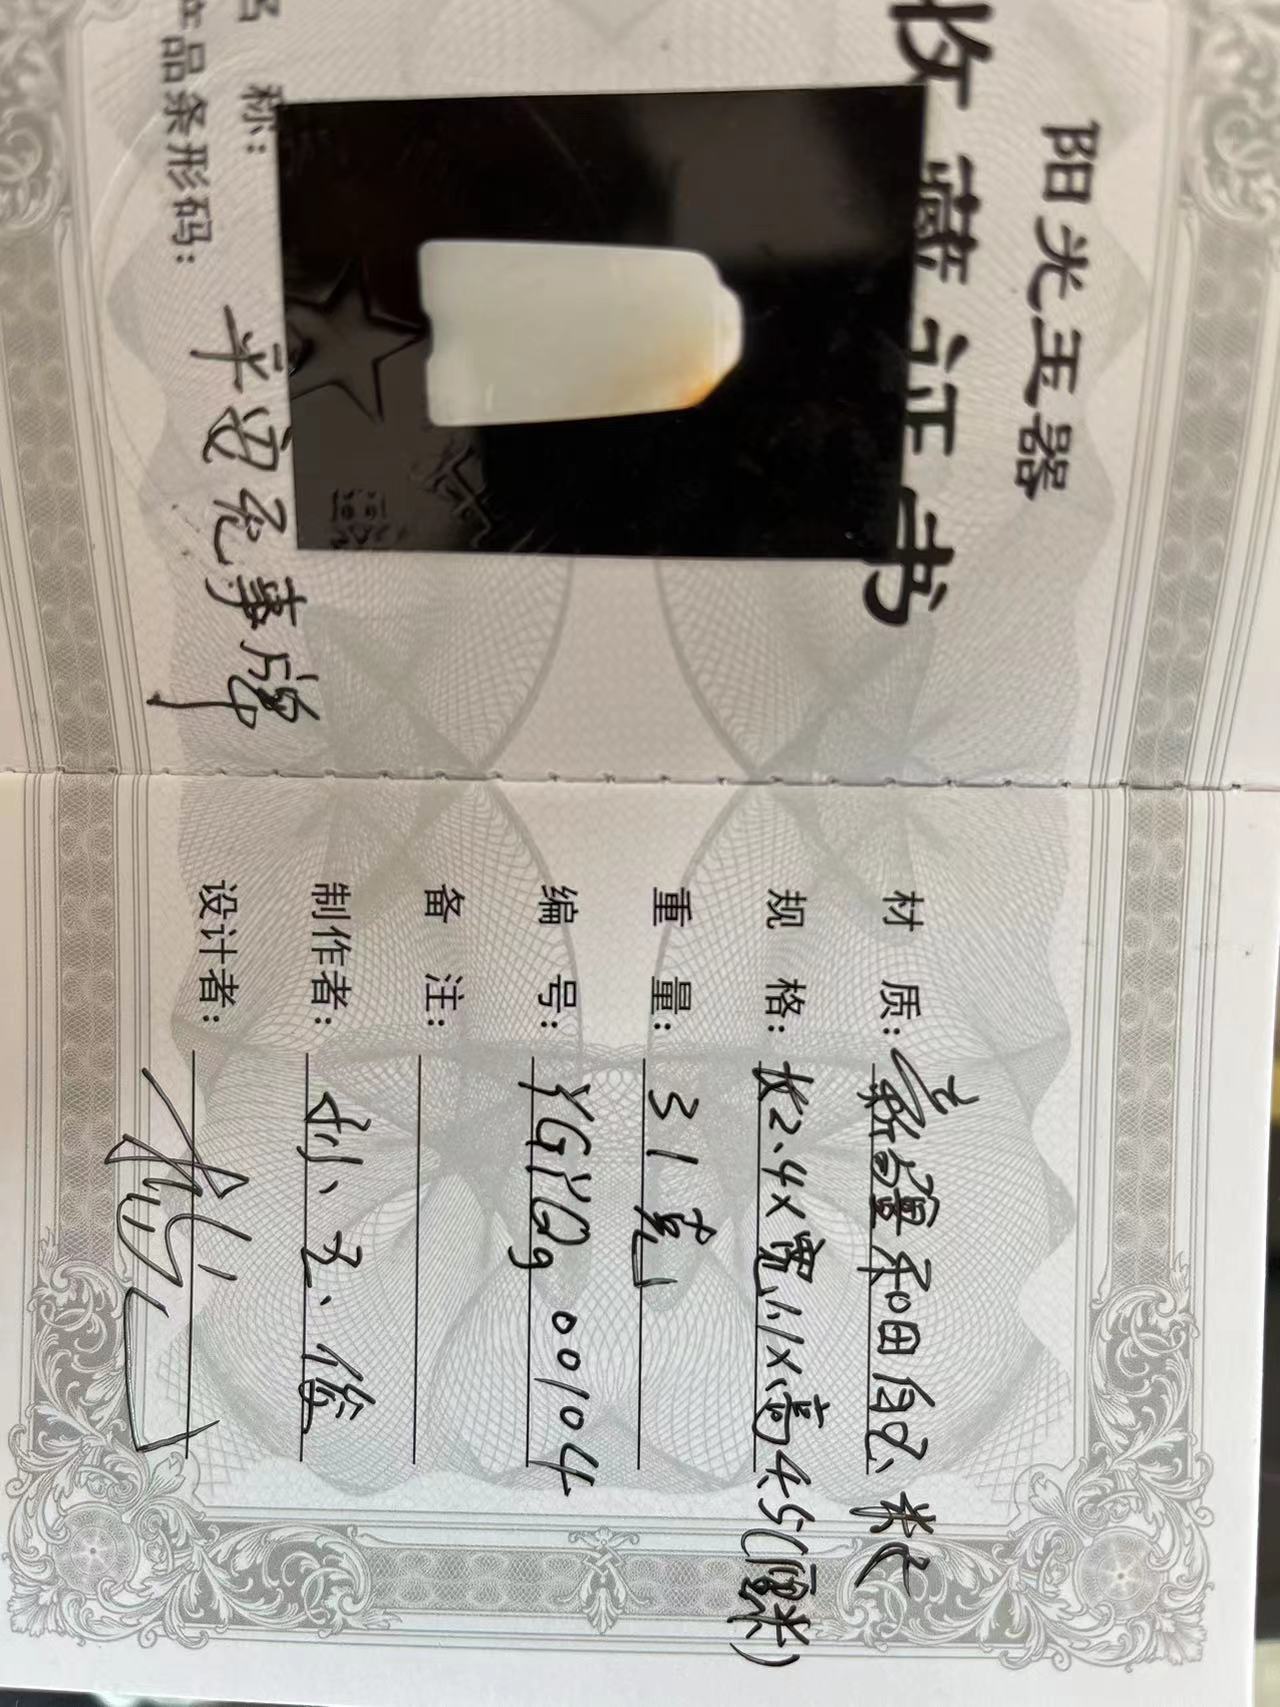 阳光玉器
收藏证书
名 称:
产品条形码:
平安无事牌
材 质: 新疆和田白玉 籽料
规 格: 长2.4×宽1.1×高4.5(厘米)
重 量: 31克
编 号: YGYQ 00104
备 注:
制作者: 孙玉俊
设计者: